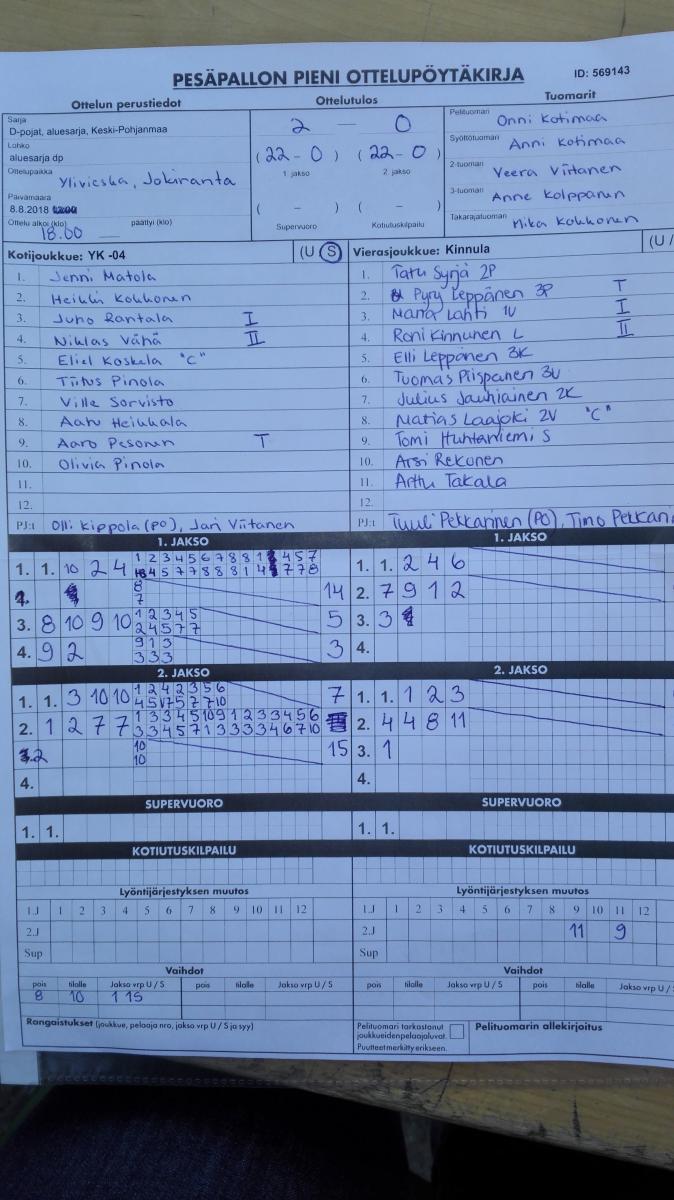 PESÄPALLON PIENI OTTELUPÖYTÄKIRJA
ID: 569143
Ottelun perustiedot
Ottelutulos
Tuomarit
Sarja
D-pojat, aluesarja, Keski-Pohjanmaa
Lohko
aluesarja dp
Ottelupaikka Ylivieska, Jokiranta
Päivämäärä
8.8.2018
Ottelu alkoi (klo) päättyi (klo)
18.00
2 — 0
(22-0) (22-0)
1. jakso 2. jakso
( - ) ( - )
Supervuoro Kotiutuskilpailu
Pelituomari Onni Kotimaa
Syöttötuomari Anni Kotimaa
2-tuomari Veera Viitanen
3-tuomari Anne Kolppanen
Takarajatuomari Mika Kokkonen
Kotijoukkue: YK -04 (U S)
1. Jenni Matola
2. Heikki Kokkonen
3. Juho Rantala I
4. Niklas Vähä II
5. Eliel Koskela "C"
6. Tiitus Pinola
7. Ville Sorvisto
8. Aatu Heikkala
9. Aaro Pesonen T
10. Olivia Pinola
11.
12.
PJ:t Olli Kippola (PO), Jari Viitanen
Vierasjoukkue: Kinnula (U /
1. Tatu Syrjä 2P
2. Pyry Leppänen 3P T
3. Lahti 1V I
4. Roni Kinnunen L II
5. Elli Leppänen 3K
6. Tuomas Piispanen 3V
7. Julius Jauhiainen 2K
8. Matias Laajoki 2V "C"
9. Tomi Huhtaniemi S
10. Arsi Rekonen
11. Arttu Takala
12.
PJ:t Tuuli Pekkarinen (PO), Timo
1. JAKSO
1. 1. 10 2 4
1 2 3 4 5 6 7 8 8 1 4 5 7
4 5 7 7 8 8 8 1 4 7 7 8
8
7
14
3. 8 10 9 10
1 2 3 4 5
2 4 5 7 7
5
4. 9 2
9 1 3
3 3 3
3
1. JAKSO
1. 1. 2 4 6
2. 7 9 1 2
3. 3
4.
2. JAKSO
1. 1. 3 10 10
1 2 4 2 3 5 6
7
2. 1 2 7 7
1 3 3 4 5 10 9 1 2 3 3 4 5 6
3 3 4 5 7 1 3 3 3 3 4 6 7 10
2
10
10
15
4.
2. JAKSO
1. 1. 1 2 3
2. 4 4 8 11
3. 1
4.
SUPERVUORO
1. 1.
SUPERVUORO
1. 1.
KOTIUTUSKILPAILU
KOTIUTUSKILPAILU
Lyöntijärjestyksen muutos
1.J 1 2 3 4 5 6 7 8 9 10 11 12
2.J
Sup
Lyöntijärjestyksen muutos
1.J 1 2 3 4 5 6 7 8 9 10 11 12
2.J 11 9
Sup
Vaihdot
pois tilalle Jakso vrp U / S pois tilalle Jakso vrp U / S
8 10 1 15
Vaihdot
pois tilalle Jakso vrp U / S pois tilalle Jakso vrp U /
Rangaistukset (joukkue, pelaaja nro, jakso vrp U / S ja syy)
Pelituomari tarkastanut
joukkueiden pelaajaluvat.
Puutteet merkitty erikseen.
Pelituomarin allekirjoitus